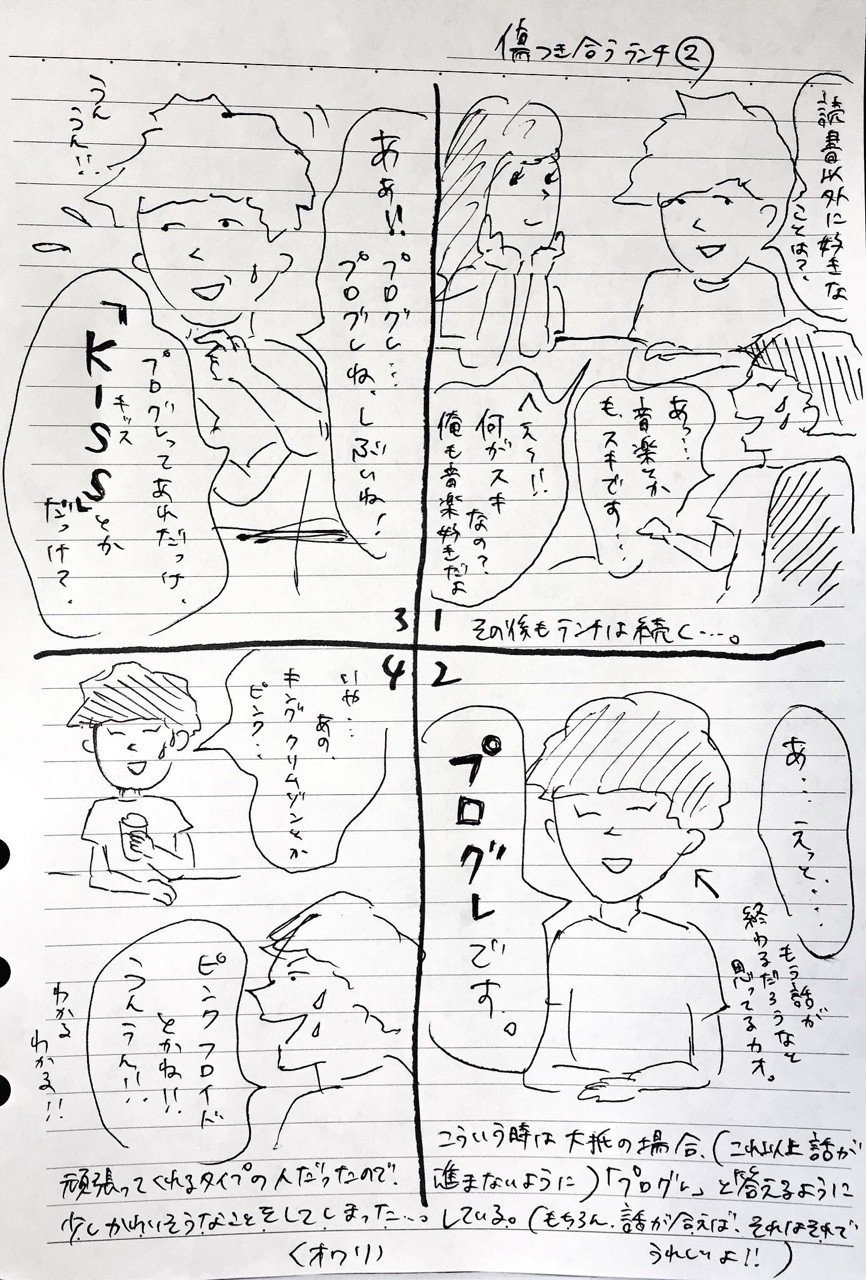 傷つき合うランチ②
読書以外に好きな
ことは?
あっ…
音楽とか
も、スキです…。
へえ〜!!
何がスキ
なの?
俺も音楽好きだよ
1
その後もランチは続く…。
2
あ…えっと…
プログレです。
もう話が
終わるだろうなと
思ってるカオ。
こういう時は大抵の場合、(これ以上話が
進まないように)「プログレ」と答えるように
している。(もちろん、話が合えば、それはそれで
うれしいよ!!)
3
あぁ!!プログレ…
プログレね、しぶいね!
うん
うん!!
プログレってあれだっけ、
「KISS」とか
キッス
だっけ?
4
いや…
あの、
キング クリムゾンとか
ピンク…
ピンクフロイド
とかね!!
うんうん!!
わかる
わかる!!
頑張ってくれるタイプの人だったので、
少しかわいそうなことをしてしまった…。
(オワリ)